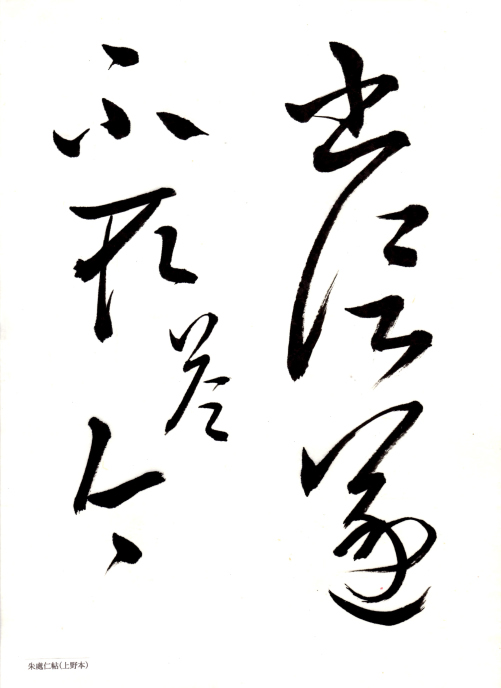 書信遂
不取答今
朱處仁帖(上野本)